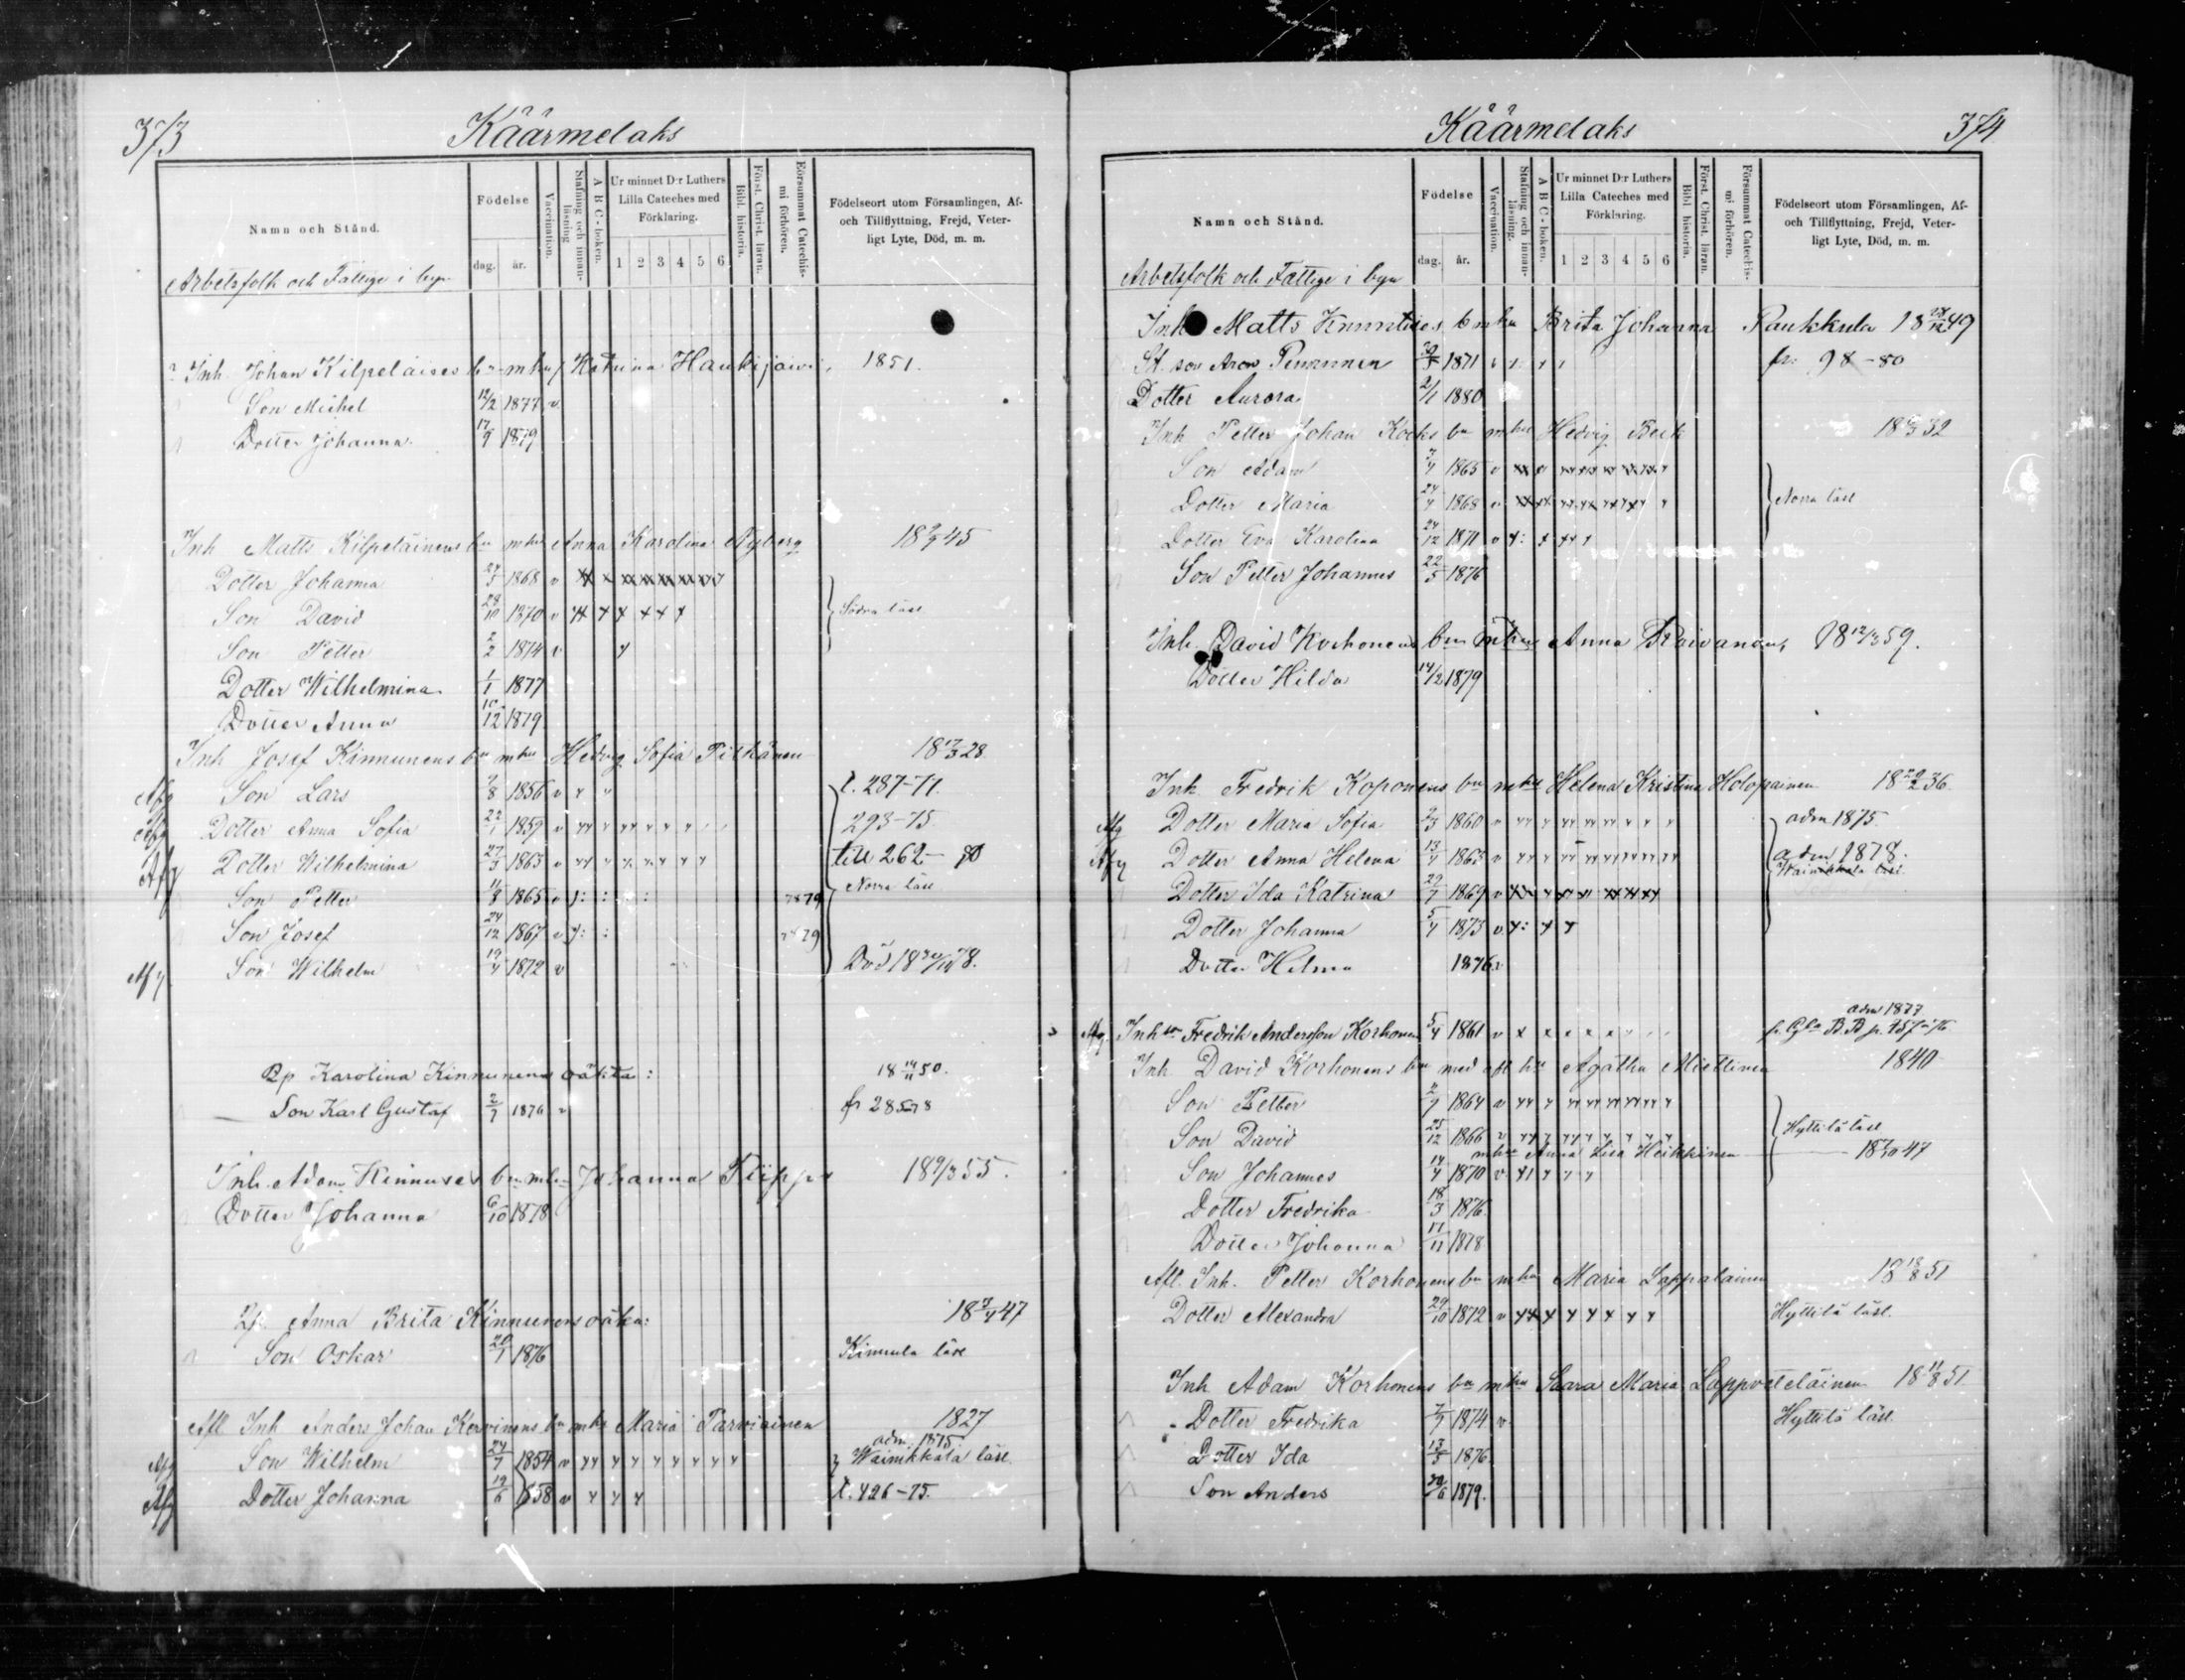 373
Käärmelaks
Namn och Stånd.
Födelse
dag.
år.
Vaccination.
Stafning och innan-läsning
A B C-boken.
Ur minnet D:r Luthers
Lilla Cateches med
Förklaring.
1 2 3 4 5 6
Bibl. historia.
Först. Christ. läran.
Försummat Catechis-mi förhören.
Födelseort utom Församlingen, Af-
och Tillflyttning, Frejd, Veter-
ligt Lyte, Död, m. m.
Arbetsfolk och Fattige i byn
Inh. Johan Kilpeläises bn mhu Katrina Haukijärvi 1851.
Son Michel 12/2 1877 v
Dotter Johanna 17/9 1879
Inh Matts Kilpeläinens bn mhu Anna Karolina Nyberg 45
Dotter Johanna 1868 v
Son David 28/10 1870 v Södra läsl
Son Petter 2/2 1874 v
Dotter Wilhelmina 1/1 1877
Dotter Anna 10/12 1879
Inh Josef Kinnunens bn mhu Hedvig Sofia Pitkänen 18 17/3 28
Afg Son Lars 1856 v t. 287-71.
Afg Dotter Anna Sofia 22/1 1859 v 293-75.
Afg Dotter Wilhelmina 1863 v till 262-80
Son Petter 1865 v 79 Norra läsl
Son Josef 24/12 1867 v 79
Afg Son Wilhelm 19/4 1872 v Död 78.
Pp Karolina Kinnunens oäkta: 18 14/11 50.
Son Karl Gustaf 2/7 1876 v fr 285-78
Inh. Adam Kinnuses bn mhu Johanna 18 9/3 55.
Dotter Johanna 6/10 1878
Pp. Anna Brita Kinnunens oäkta: 47
Son Oskar 1876 Kimmula läsl
Afl Inh Anders Johan Kervinens bn mhu Maria Parviainen 1827
adm. 1875
Afg Son Wilhelm 24/7 1854 v Wainikkala läsl.
Afg Dotter Johanna 19/6 1858 v t. 426-75.
Käärmelaks
374
Namn och Stånd.
Födelse
dag.
år.
Vaccination.
Stafning och innan-läsning.
A B C-boken.
Ur minnet D:r Luthers
Lilla Cateches med
Förklaring.
1 2 3 4 5 6
Bibl historia.
Först. Christ. läran.
Försummat Catechis-mi förhören.
Födelseort utom Församlingen, Af-
och Tillflyttning, Frejd, Veter-
ligt Lyte, Död, m. m.
Arbetsfolk och Fattige i byn
Inh Matts bn mhu Brita Johanna Paukkula 49
St. son Aron 1871 fr. 98-80
Dotter Aurora 2/1 1880
Inh Petter Johan Kocks bn mhu Hedvig Beck 32
Son Adam 1865 v
Dotter Maria 24/4 1868 v Norra läsl
Dotter Eva Karolina 24/12 1871 v
Son Petter Johannes 22/5 1876
Inh. David bn mhu Anna 18 12/3 59.
Dotter Hilda 14/2 1879
Inh Fredrik Koponens bn mhu Helena Kristina Holopainen 18 20/2 36
Afg Dotter Maria Sofia 1860 v adm 1875
Afg Dotter Anna Helena 1863 v adm 1878.
Wainikkala läsl
Dotter Ida Katrina 29/7 1869 v
Dotter Johanna 5/4 1873 v
Dotter Helma 1876 v
adm 1877
Afg. Inh son Fredrik Andersson Korhonen 5/4 1861 v
Inh David Korhonens bn med afl hu Agatha Miettinen 1840
Son Petter 1864 v
Son David 25/12 1866 v Hyttilä läsl
mhu Anna Lisa Heikkinen 47
Son Johannes 14/4 1870 v
Dotter Fredrika 18/3 1876
Dotter Johanna 17/11 1878
Afl. Inh. Petter Korhonens bn mhu Maria Lappalainen 18 18/8 51
Dotter Alexandra 29/10 1872 v Hyttilä läsl.
Inh Adam Korhonens bn mhu Saara Maria Lappveteläinen 18 11/8 51
Dotter Fredrika 7/7 1874 v Hyttilä läsl.
Dotter Ida 13/5 1876
Son Anders 1879.